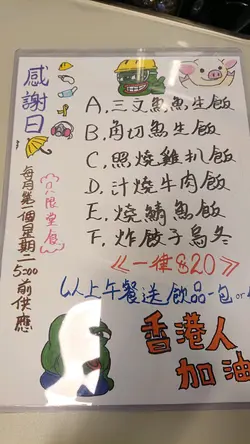 感謝日
只限堂食
每月第一個星期二
5:00前供應
A. 三文魚魚生飯
B. 角切魚生飯
C. 照燒雞扒飯
D. 汁燒牛肉飯
E. 燒鯖魚飯
F. 炸餃子烏冬
《一律$20》
以上午餐送飲品一包or
香港人
加油